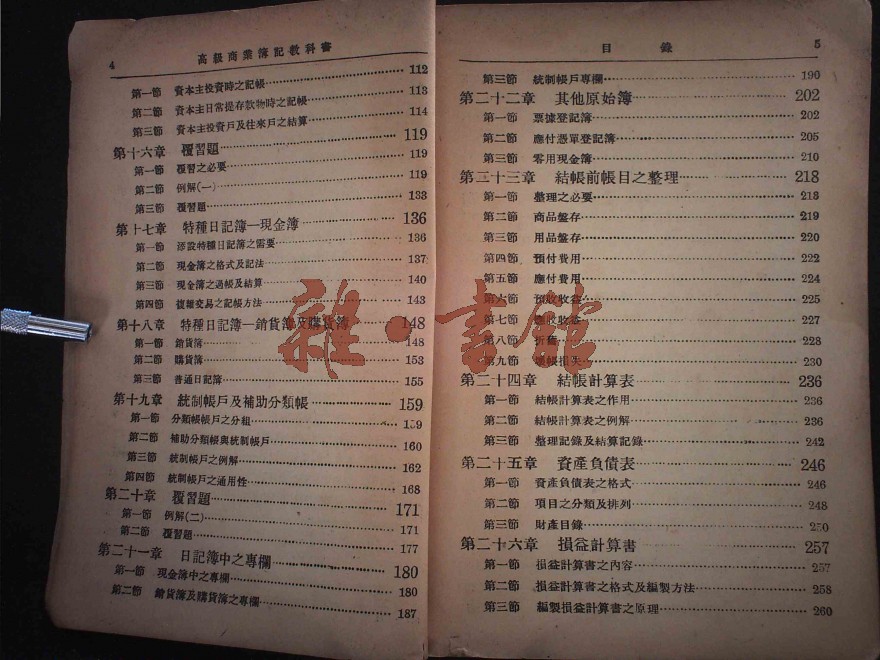 4 高級商業簿記教科書
第一節 資本主投資時之記帳 112
第二節 資本主日常提存款物時之記帳 113
第三節 資本主投資戶及往來戶之結算 114
第十六章 覆習題 119
第一節 覆習之必要 119
第二節 例解(一) 119
第三節 覆習題 133
第十七章 特種日記簿—現金簿 136
第一節 添設特種日記簿之需要 136
第二節 現金簿之格式及記法 137
第三節 現金簿之過帳及結算 140
第四節 複雜交易之記帳方法 143
第十八章 特種日記簿—銷貨簿及購貨簿 148
第一節 銷貨簿 148
第二節 購貨簿 153
第三節 普通日記簿 155
第十九章 統制帳戶及補助分類帳 159
第一節 分類帳帳戶之分組 159
第二節 補助分類帳與統制帳戶 160
第三節 統制帳戶之例解 162
第四節 統制帳戶之通用性 168
第二十章 覆習題 171
第一節 例解(二) 171
第二節 覆習題 177
第二十一章 日記簿中之專欄 180
第一節 現金簿中之專欄 180
第二節 銷貨簿及購貨簿之專欄 187
目錄 5
第三節 統制帳戶專欄 190
第二十二章 其他原始簿 202
第一節 票據登記簿 202
第二節 應付憑單登記簿 205
第三節 零用現金簿 210
第三十三章 結帳前帳目之整理 218
第一節 整理之必要 218
第二節 商品盤存 219
第三節 用品盤存 220
第四節 預付費用 222
第五節 應付費用 224
第六節 預收收益 225
第七節 應收收益 227
第八節 折舊 228
第九節 壞帳損失 230
第二十四章 結帳計算表 236
第一節 結帳計算表之作用 236
第二節 結帳計算表之例解 236
第三節 整理記錄及結算記錄 242
第二十五章 資產負債表 246
第一節 資產負債表之格式 246
第二節 項目之分類及排列 248
第三節 財產目錄 250
第二十六章 損益計算書 257
第一節 損益計算書之內容 257
第二節 損益計算書之格式及編製方法 258
第三節 編製損益計算書之原理 260
雜·書館